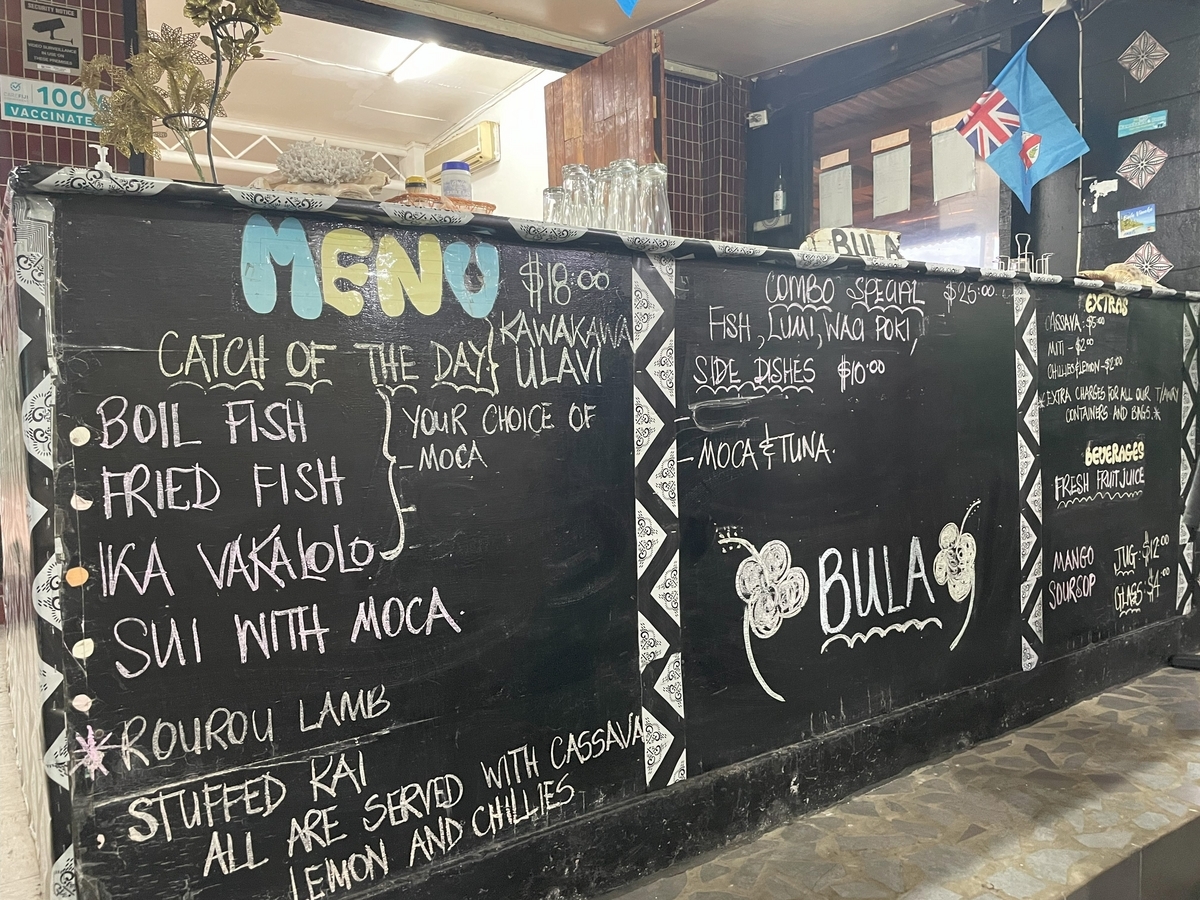 SECURITY NOTICE
VIDEO SURVEILLANCE
IN USE ON
THESE PREMISES
100%
VACCINATE
BULA
MENU $18.00
CATCH OF THE DAY } KAWAKAWA
ULAVI
BOIL FISH
FRIED FISH
IKA VAKALOLO
} YOUR CHOICE OF
- MOCA
-
SUI WITH MOCA.
* ROUROU LAMB
STUFFED KAI
ALL ARE SERVED WITH CASSAVA
LEMON AND CHILLIES
COMBO SPECIAL $25.00
FISH, LUMI, WACI POKI,
SIDE DISHES $10.00
- MOCA & TUNA.
BULA
EXTRAS
CASSAVA: $5.00
MITI - $2.00
CHILLIES/LEMON - $2.00
*EXTRA CHARGES FOR ALL OUR T/AWAY
CONTAINERS AND BAGS.*
BEVERAGES
FRESH FRUIT JUICE
MANGO JUG: $12.00
SOURSOP GLASS: $4.00